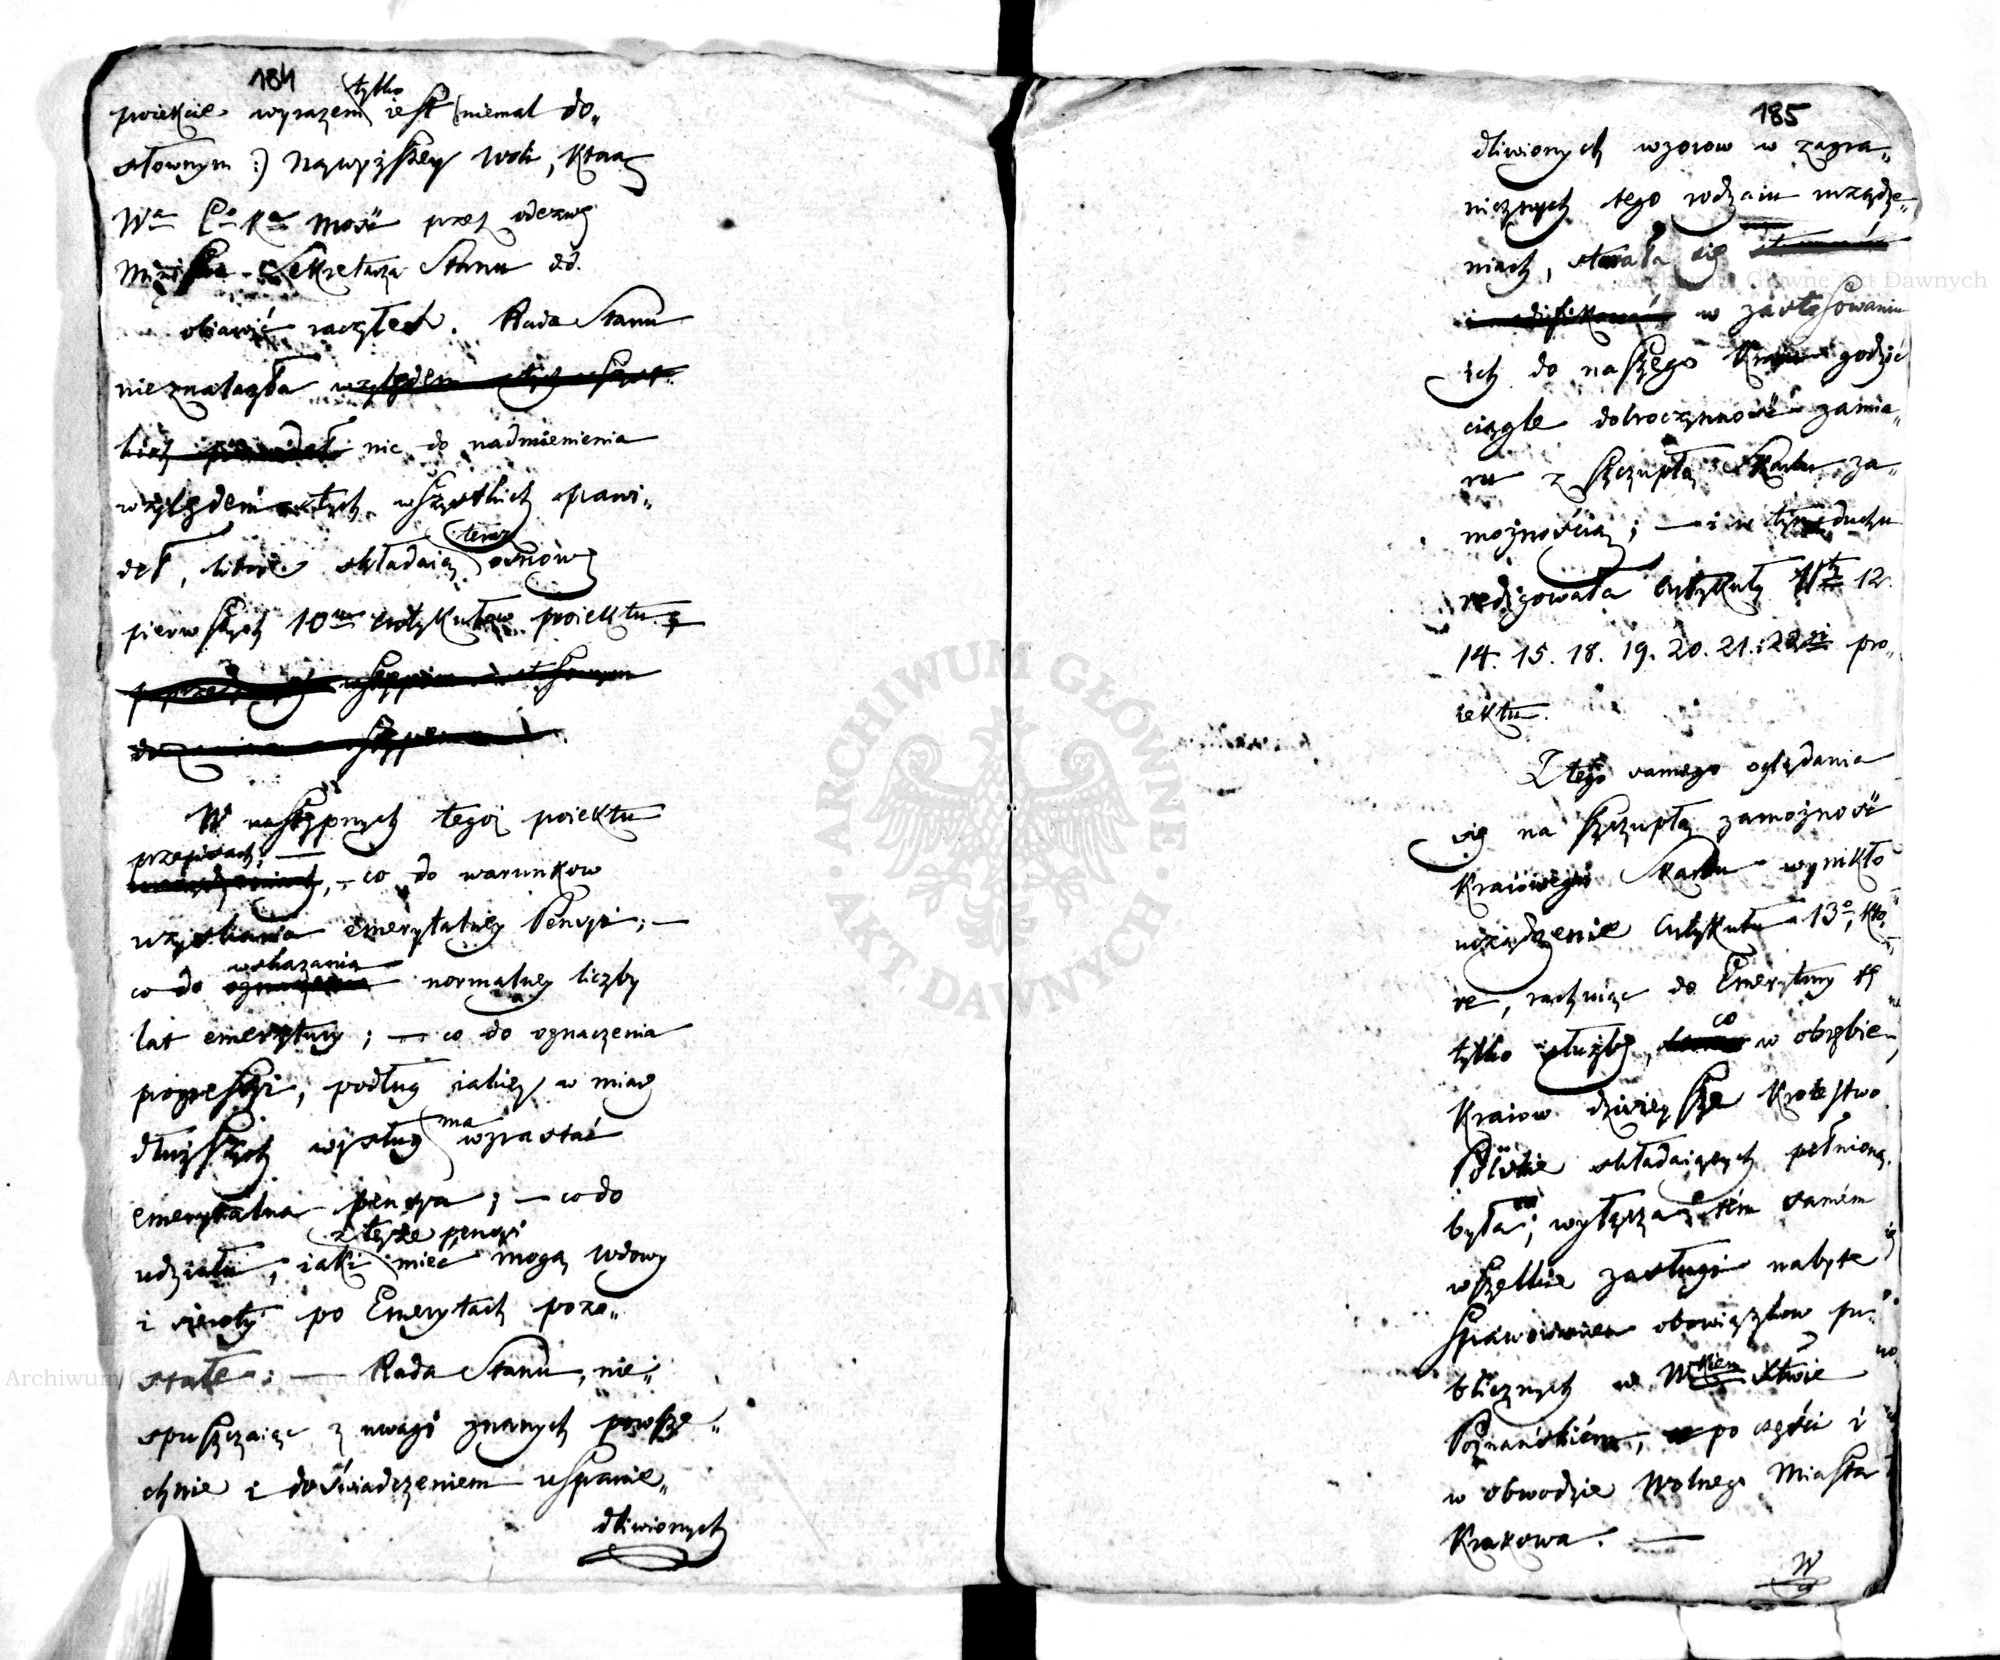 184
proiekcie wyrazem tylko iest (niemal do„
słownym :) Naywyższey Woli, którą
Wa C. K. Mość przez odezwę
Ministra Sekretarza Stanu d.d.
obiawić raczyłeś. Rada Stanu
nieznalazła względem tych wszyst„
kich prawideł nic do nadmienienia
względem tych wszystkich prawi„
deł, które składaią teraz osnowę
pierwszych 10ciu artykułów proiektu
W następnych tegoż proiektu
przepisach, — co do warunkow
uzyskania emerytalney Pensyi; —
co do wskazania normalney liczby
lat emerytury; — co do oznaczenia
progressyi, podług iakiey w miarę
dłuższych wysług ma wzrastać
emerytalna pensya; — co do
udziału, iaki z teyże pensyi mieć mogą wdowy
i sieroty po Emerytach pozo„
stałe: — Rada Stanu, nie„
spuszczaiąc z uwagi znanych powsze„
chnie i doświadczeniem usprawie„
dliwionych
185
dliwionych wzorow w zagra„
nicznych tego rodzaiu urządze„
niach, starała się
w zastosowaniu
ich do naszego Kraiu godzić
ciągle dobroczynność zamia„
ru z szczupłą Skarbu za„
możnością; — i w tym duchu
redigowała Artykuły 11. 12.
14. 15. 18. 19. 20. 21. i 22gi pro„
iektu.
Z tego samego oglądania
się na szczupłą zamożność
Kraiowego Skarbu wynikło
urządzenie Artykułu 13o, któ„
re, rachuiąc do Emerytury tę
tylko służbę, co w obrębie
Kraiow dzisieysze Krolestwo
Polskie składaiących pełnioną
była; wyłącza tém samém
wszelkie zasługi nabyte
sprawowaniem obowiązkow pu„
blicznych w Wkiem Xtwie
Poznańskiém, po części i
w obwodzie Wolnego Miasta
Krakowa. —
W